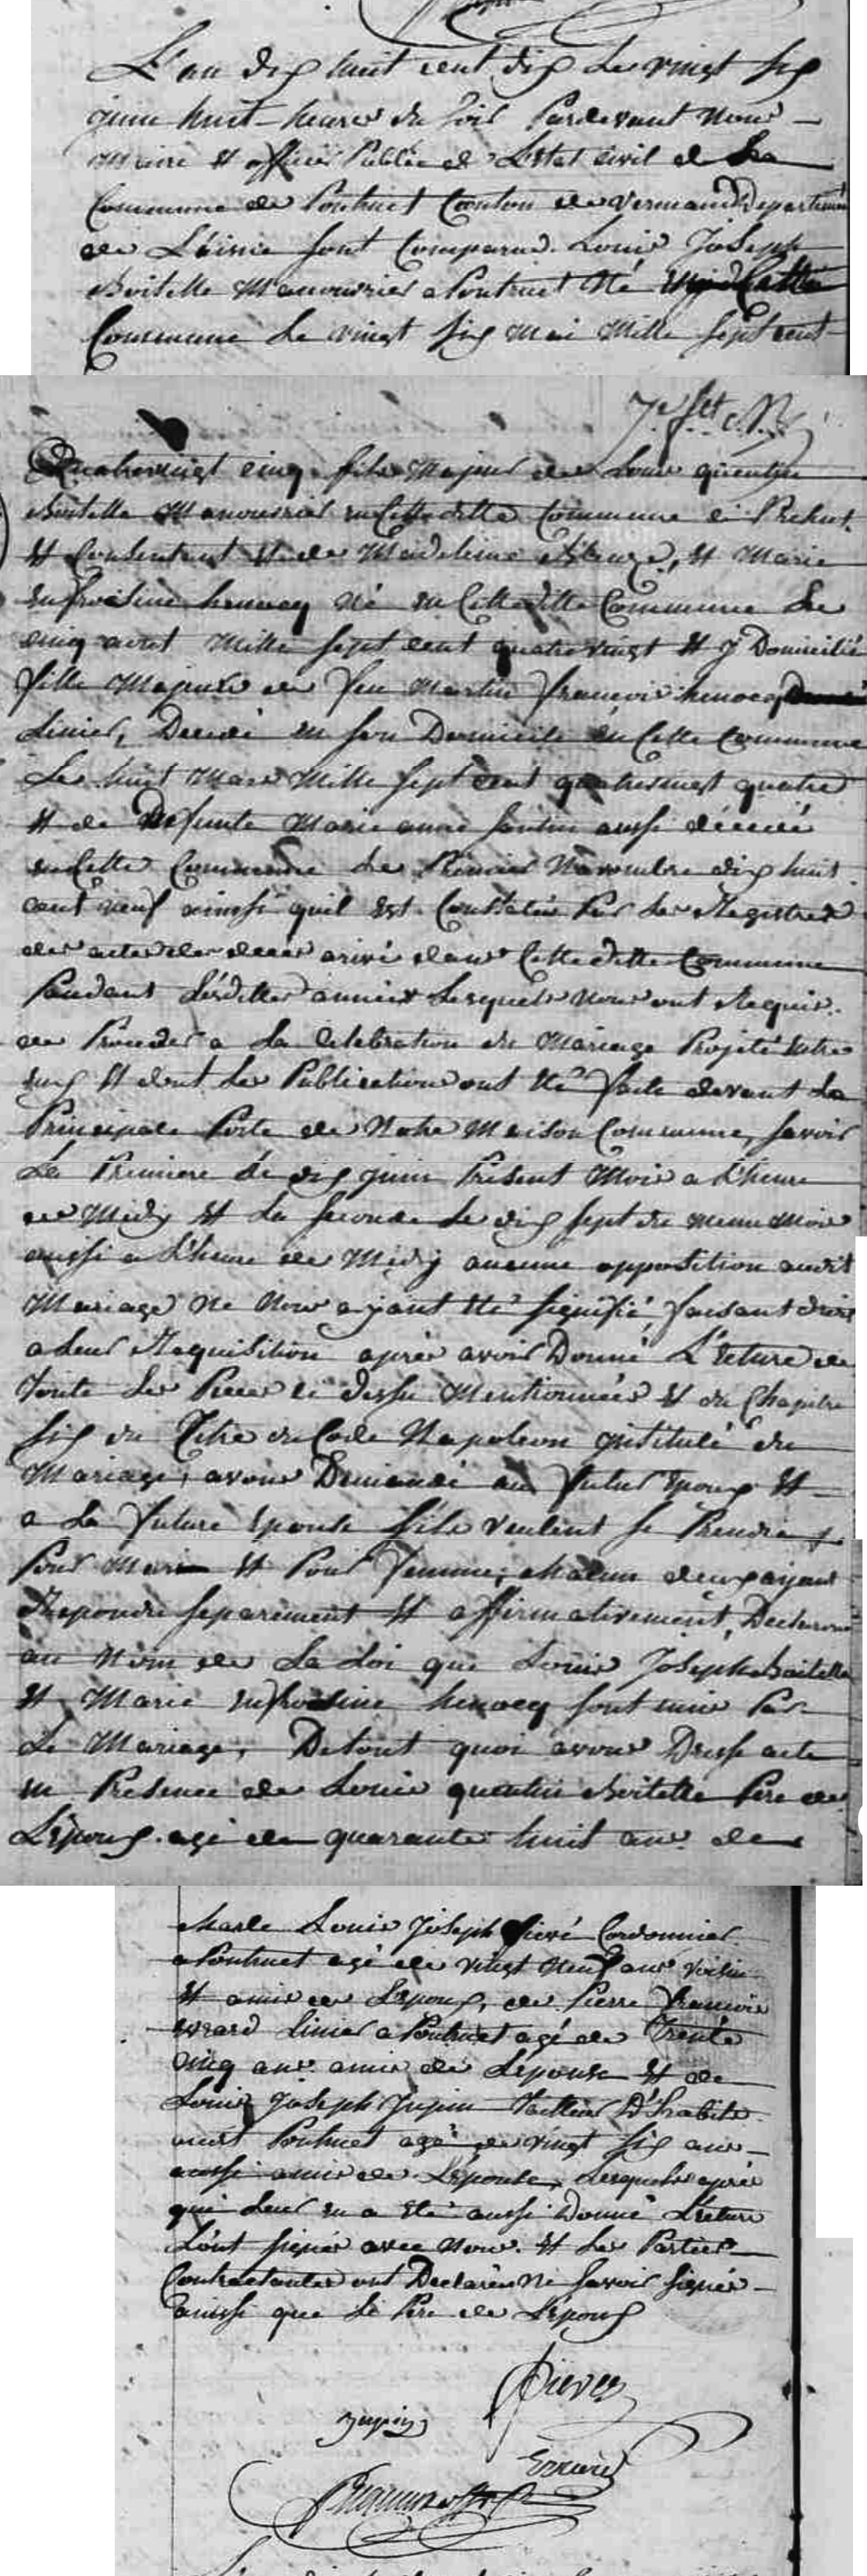 L'an dix huit cent dix Le vingt six
juin huit heures du soir Pardevant Nous
Maire et officier Public de L'Etat Civil de La
Commune de Pontruet Canton de Vermand Departement
de L'aisne sont Comparus Louis Joseph
Boitelle Manouvrier a Pontruet Né
Commune Le vingt six mai Mille Sept cent
Quatrevingt cinq fils Majeur de Louis quentin
Boitelle Manouvrier en Cette ditte Commune ci Présent
et Consentant et de Madeleine et Marie
Eufroisine henocq né en Cette ditte Commune Le
cinq aout Mille Sept cent quatre vingt et y Domicilié
fille Majeure de feu Martin francois henocq
Linier, Décédé en son Domicile en Cette Commune
Le huit Mars Mille Sept cent quatrevingt quatre
et de Defunte Marie anne aussi décédé
en Cette Commune Le Premier Novembre dix huit
cent neuf ainsi quil est Constatée Par Les Registres
des actes des deces arivé dans Cette ditte Commune
Pendant Lesdittes années Lesquels Nous ont Requis
de Proceder a La Celebration du Mariage Projeté entre
eux et dont Les Publication ont été faite devant La
Principale Porte de Notre Maison Commune, Savoir
La Premiere le dix juin Présent Mois a L'heure
de Midy et La Seconde Le dix Sept du meme Mois
aussi a L'heure de Midy aucune opposition audit
Mariage Ne Nous ayant été Signifié, faisant droit
a Leur Requisition après avoir Donné L'ecture de
toute Les Pieces ci dessu Mentionnées et du Chapitre
Six du Titre du Code Napoleon intitulé du
Mariage, avons Demandé au futur Epoux et
a La future Epouse Sils veulent Se Prendre
Pour Mari et Pour femme, chacun deux ayant
Repondu Separement et affirmativement, Declarons
au Nom de La Loi que Louis Joseph Boitelle
et Marie Eufroisine henocq sont unis Par
Le Mariage, De tout quoi avons Dressé acte
en Présence de Louis quentin Boitelle Pere de
L'Epoux agé de quarante huit ans de
Charle Louis Joseph Cordonnier
a Pontruet agé de vingt Neuf ans voisin
et amis de L'epoux, de Pierre francois
Evrard Linier a Pontruet agé de Trente
cinq ans amis de L'épouse et de
Louis Joseph Jupin Tailleur D'habits
Pontruet agé de vingt Six ans
aussi amis de L'épouse, Lesquels après
qui Leur en a été aussi Donné L'ecture
Lont Signé avec Nous et Les Parties
Contractantes ont Declarées Ne Savoir Signer
ainsi que Le Pere de L'Epoux
Jupin